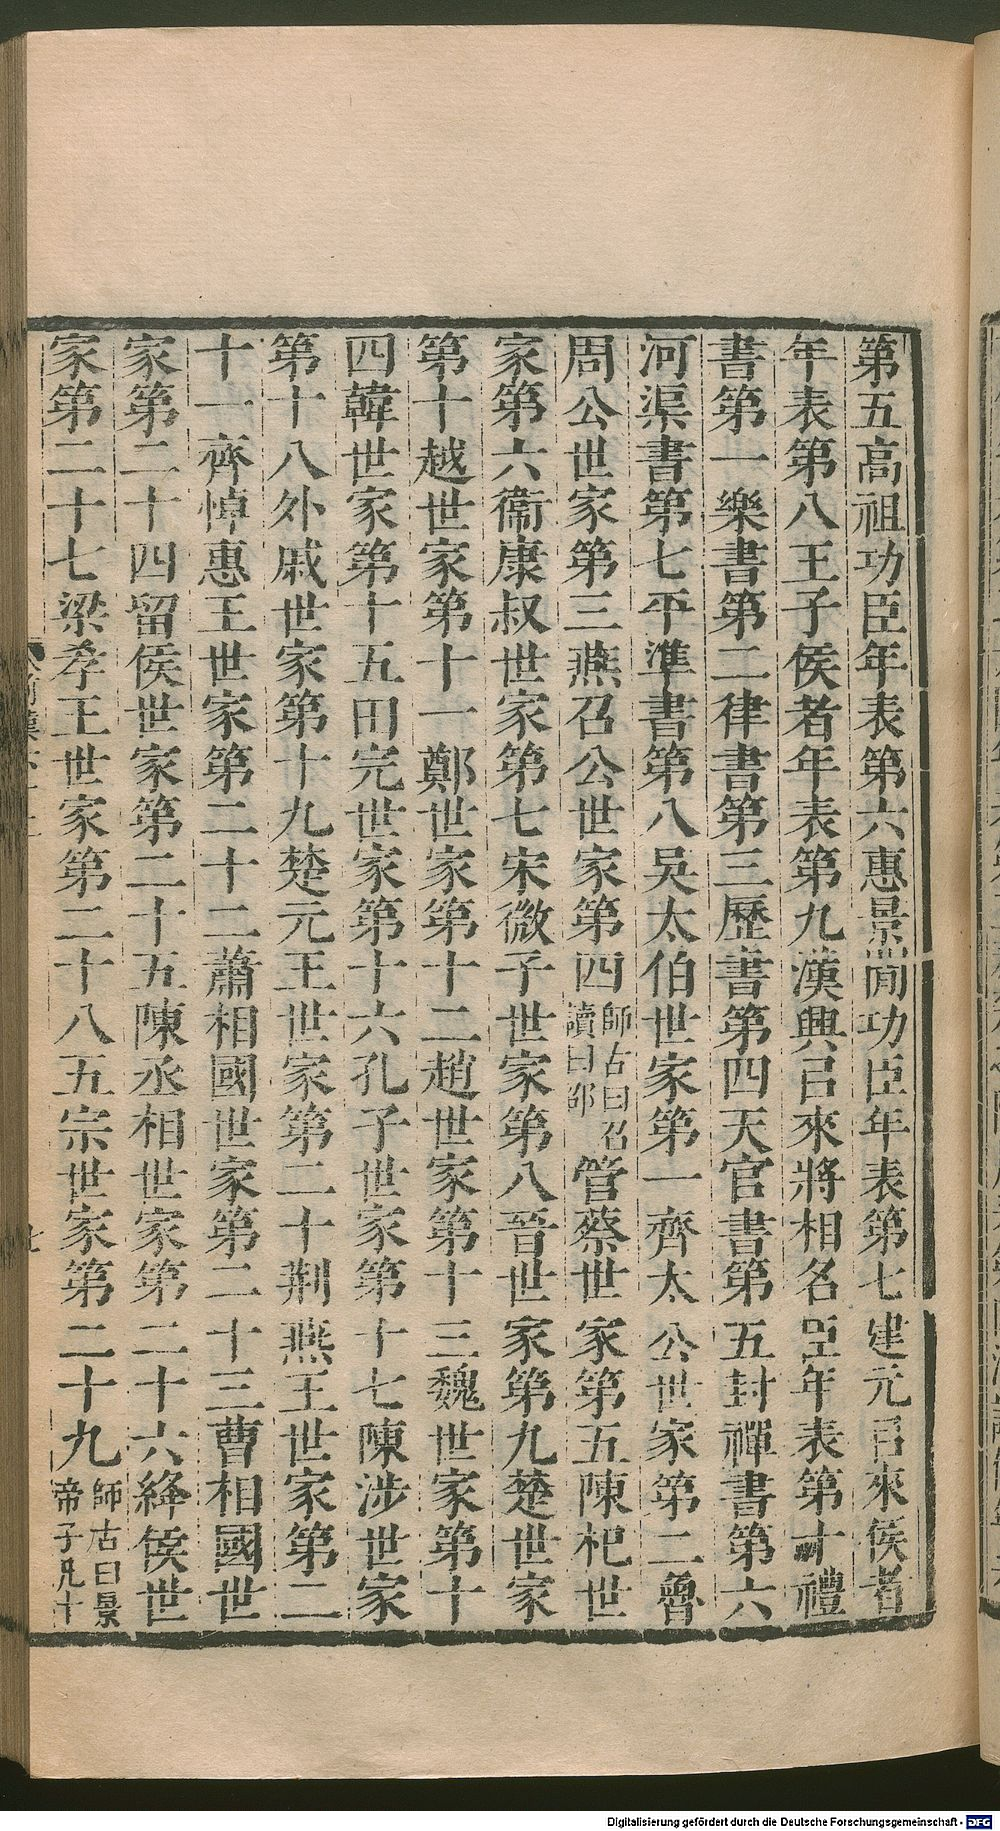 第五高祖功臣年表第六惠景閒功臣年表第七建元㠯來侯者
年表第八王子侯者年表第九漢興㠯來將相名臣年表第十禮
書第一樂書第二律書第三歷書第四天官書第五封禪書第六
河渠書第七平準書第八吳太伯世家第一齊太公世家第二魯
周公世家第三燕召公世家第四師古曰召讀曰邵管蔡世家第五陳杞世
家第六衞康叔世家第七宋微子世家第八晉世家第九楚世家
第十越世家第十一鄭世家第十二趙世家第十三魏世家第十
四韓世家第十五田完世家第十六孔子世家第十七陳涉世家
第十八外戚世家第十九楚元王世家第二十荆燕王世家第二
十一齊悼惠王世家第二十二蕭相國世家第二十三曹相國世
家第二十四留侯世家第二十五陳丞相世家第二十六絳侯世
家第二十七梁孝王世家第二十八五宗世家第二十九師古曰景帝子凡十
Digitalisierung gefördert durch die Deutsche Forschungsgemeinschaft - DFG